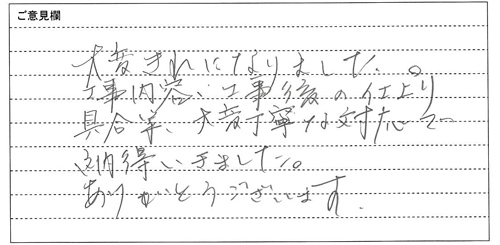 ご意見欄
大変きれいになりました。
工事内容、工事後の仕上り
具合等、大変丁寧な対応で
納得いきました。
ありがとうございます。